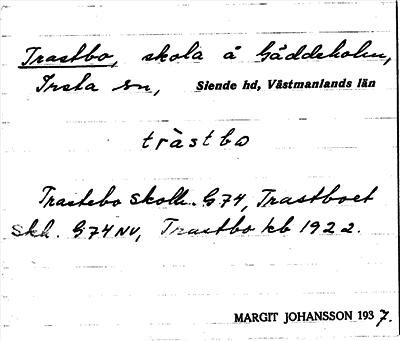 Trastbo, skola å Gäddeholm,
Irsta sn, Siende hd, Västmanlands län
tràstbo
Trastebo skolh. G 74, Trastboet
Skh. G 74 NV, Trastbo kb 1922.
MARGIT JOHANSSON 1937.